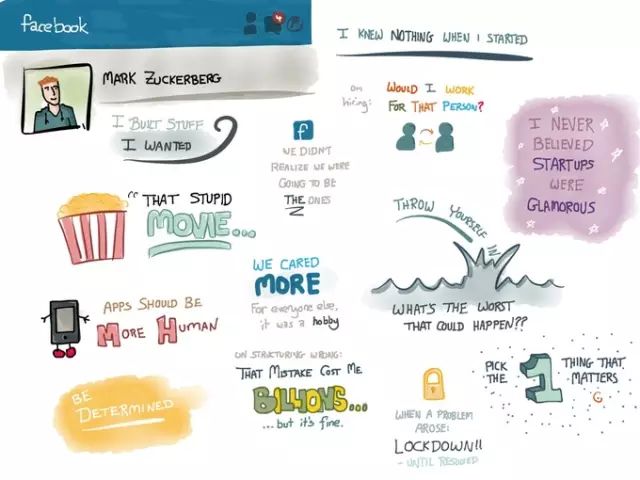 facebook
4
MARK ZUCKERBERG
I BUILT STUFF
I WANTED
"THAT STUPID
MOVIE...
APPS SHOULD BE
MORE HUMAN
BE
DETERMINED
f
WE DIDN'T
REALIZE WE WERE
GOING TO BE
THE ONES
WE CARED
MORE
For everyone else,
it was a hobby
ON STRUCTURING WRONG:
THAT MISTAKE COST ME
BILLIONS...
... but it's fine.
I KNEW NOTHING WHEN I STARTED
on
hiring:
WOULD I WORK
FOR THAT PERSON?
THROW YOURSELF
WHAT'S THE WORST
THAT COULD HAPPEN??
WHEN A PROBLEM
AROSE:
LOCKDOWN!!
- UNTIL RESOLVED
I NEVER
BELIEVED
STARTUPS
WERE
GLAMOROUS
PICK
THE
1
THING THAT
MATTERS